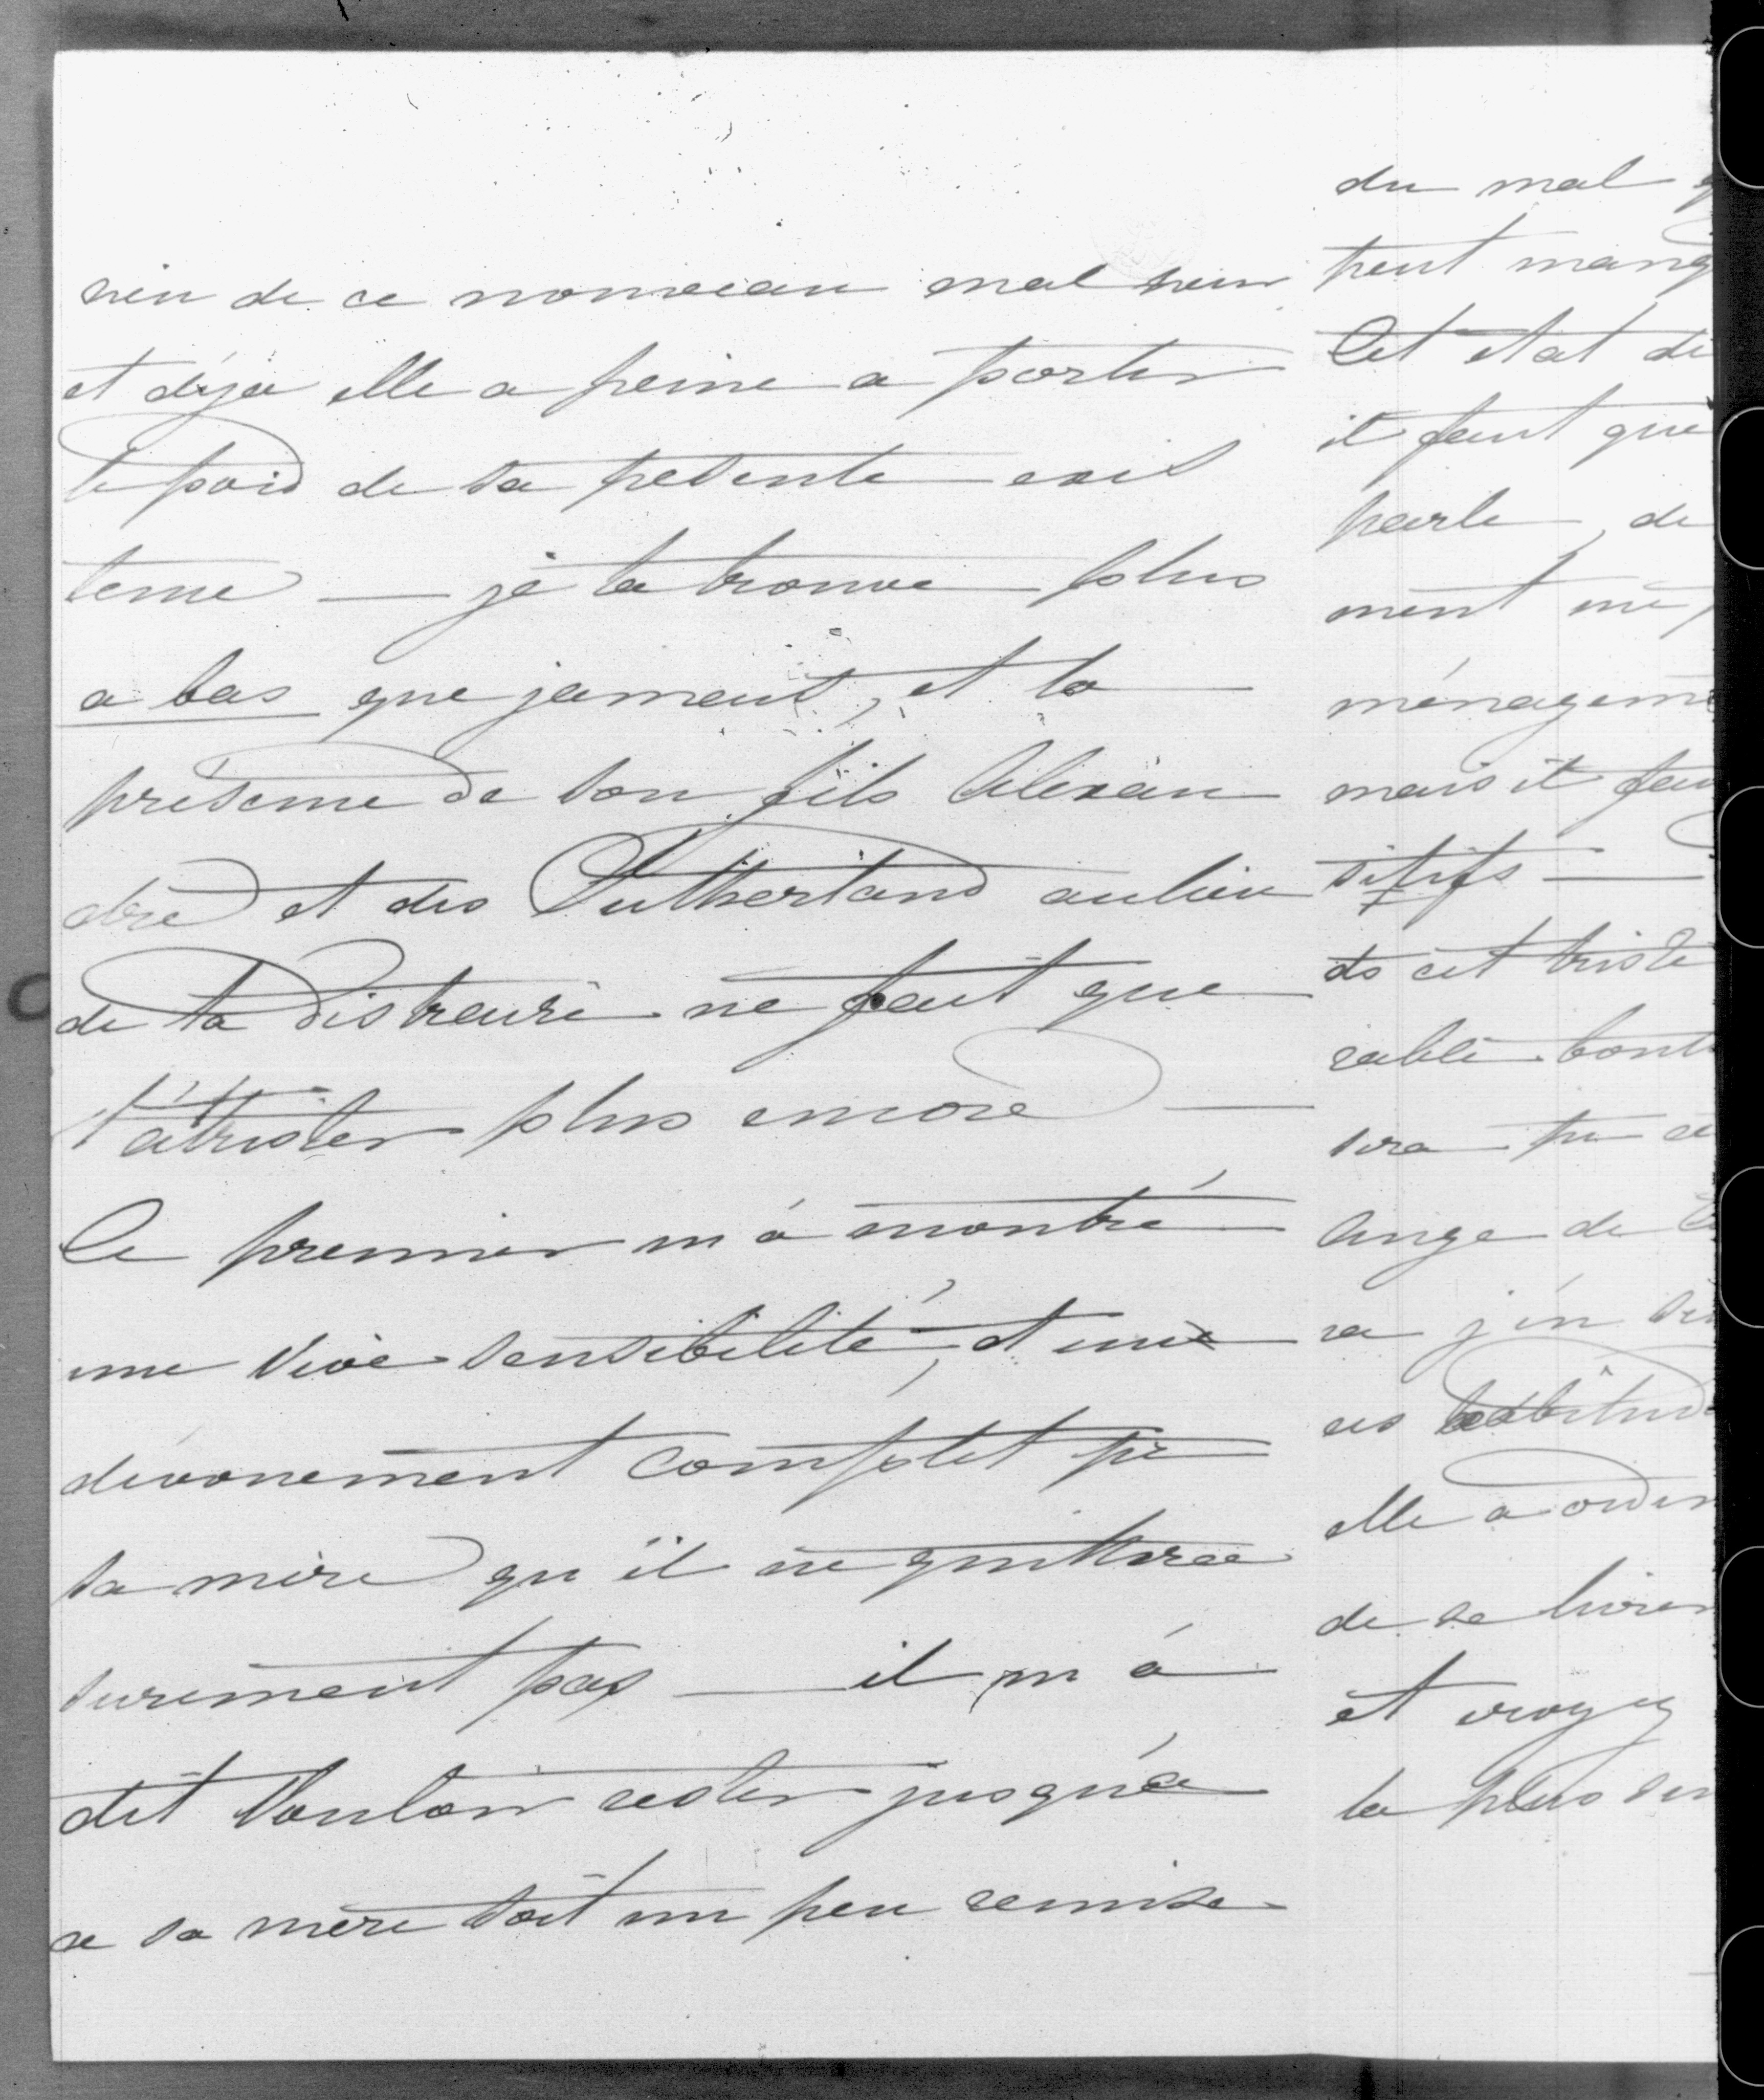 rien de ce nouveau mal heur
et déja elle a peine a porter
le poid de sa pesente exis
tence — je la trouve plus
a bas que jamais, et la
présence de son fils Alexan
dre et des Sutherland aulieu
de la distraire ne fait que
l'attrister plus encore —
Le premier m'á montré
une vive sensibilité, et une
dévouement complet pr
sa mère qu'il ne quittera
surement pas — il m'á
dit vouloir rester jusqu'a
ce sa mère soit un peu remise
du mal
peut mang
Cet état de
il faut que
parle, de
ment
ménageme
mais il fau
sitifs —
ds cet triste
rable bont
sera pr ce
Ange de
ra j'en
ses habitud
elle a orden
de se livrer
et croyez
la plus sin